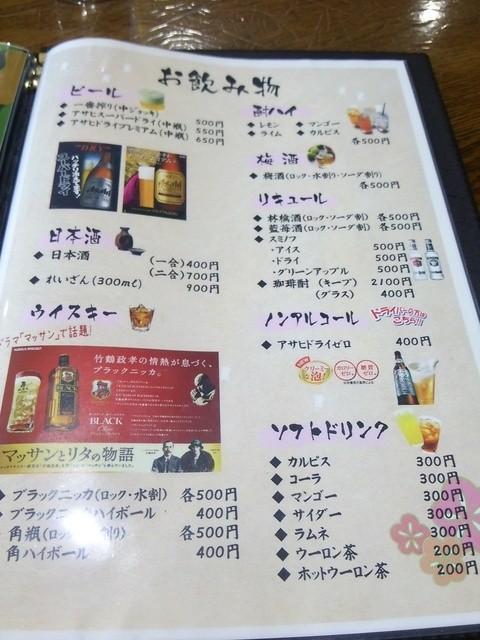 お飲み物
ビール
◆ 一番搾り(中ジョッキ) 500円
◆ アサヒスーパードライ(中瓶) 550円
◆ アサヒドライプレミアム(中瓶) 650円
DRY
Asahi
日本酒
◆ 日本酒 (一合) 400円
(二合) 700円
◆ れいざん(300ml) 900円
ウイスキー
ドラマ「マッサン」で話題!
竹鶴政孝の情熱が息づく、
ブラックニッカ。
BLACK
マッサンとリタの物語
◆ ブラックニッカ(ロック・水割) 各500円
◆ ブラックニッカハイボール 400円
◆ 角瓶(ロック・水割り) 各500円
角ハイボール 400円
酎ハイ
◆ レモン ◆ マンゴー
◆ ライム ◆ カルピス
各500円
梅酒
◆ 梅酒(ロック・水割り・ソーダ割り)
各500円
リキュール
◆ 林檎酒(ロック・ソーダ割) 各500円
◆ 藍苺酒(ロック・ソーダ割) 各500円
◆ スミノフ
・アイス 500円
・ドライ 500円
・グリーンアップル 500円
◆ 珈琲酎 (キープ) 2100円
(グラス) 400円
ノンアルコール
ドライバーの方はこちら!!
◆ アサヒドライゼロ 400円
クリーミーな泡!
カロリーゼロ。
糖質ゼロ。
ソフトドリンク
◆ カルピス 300円
◆ コーラ 300円
◆ マンゴー 300円
◆ サイダー 300円
◆ ラムネ 300円
◆ ウーロン茶 200円
◆ ホットウーロン茶 200円